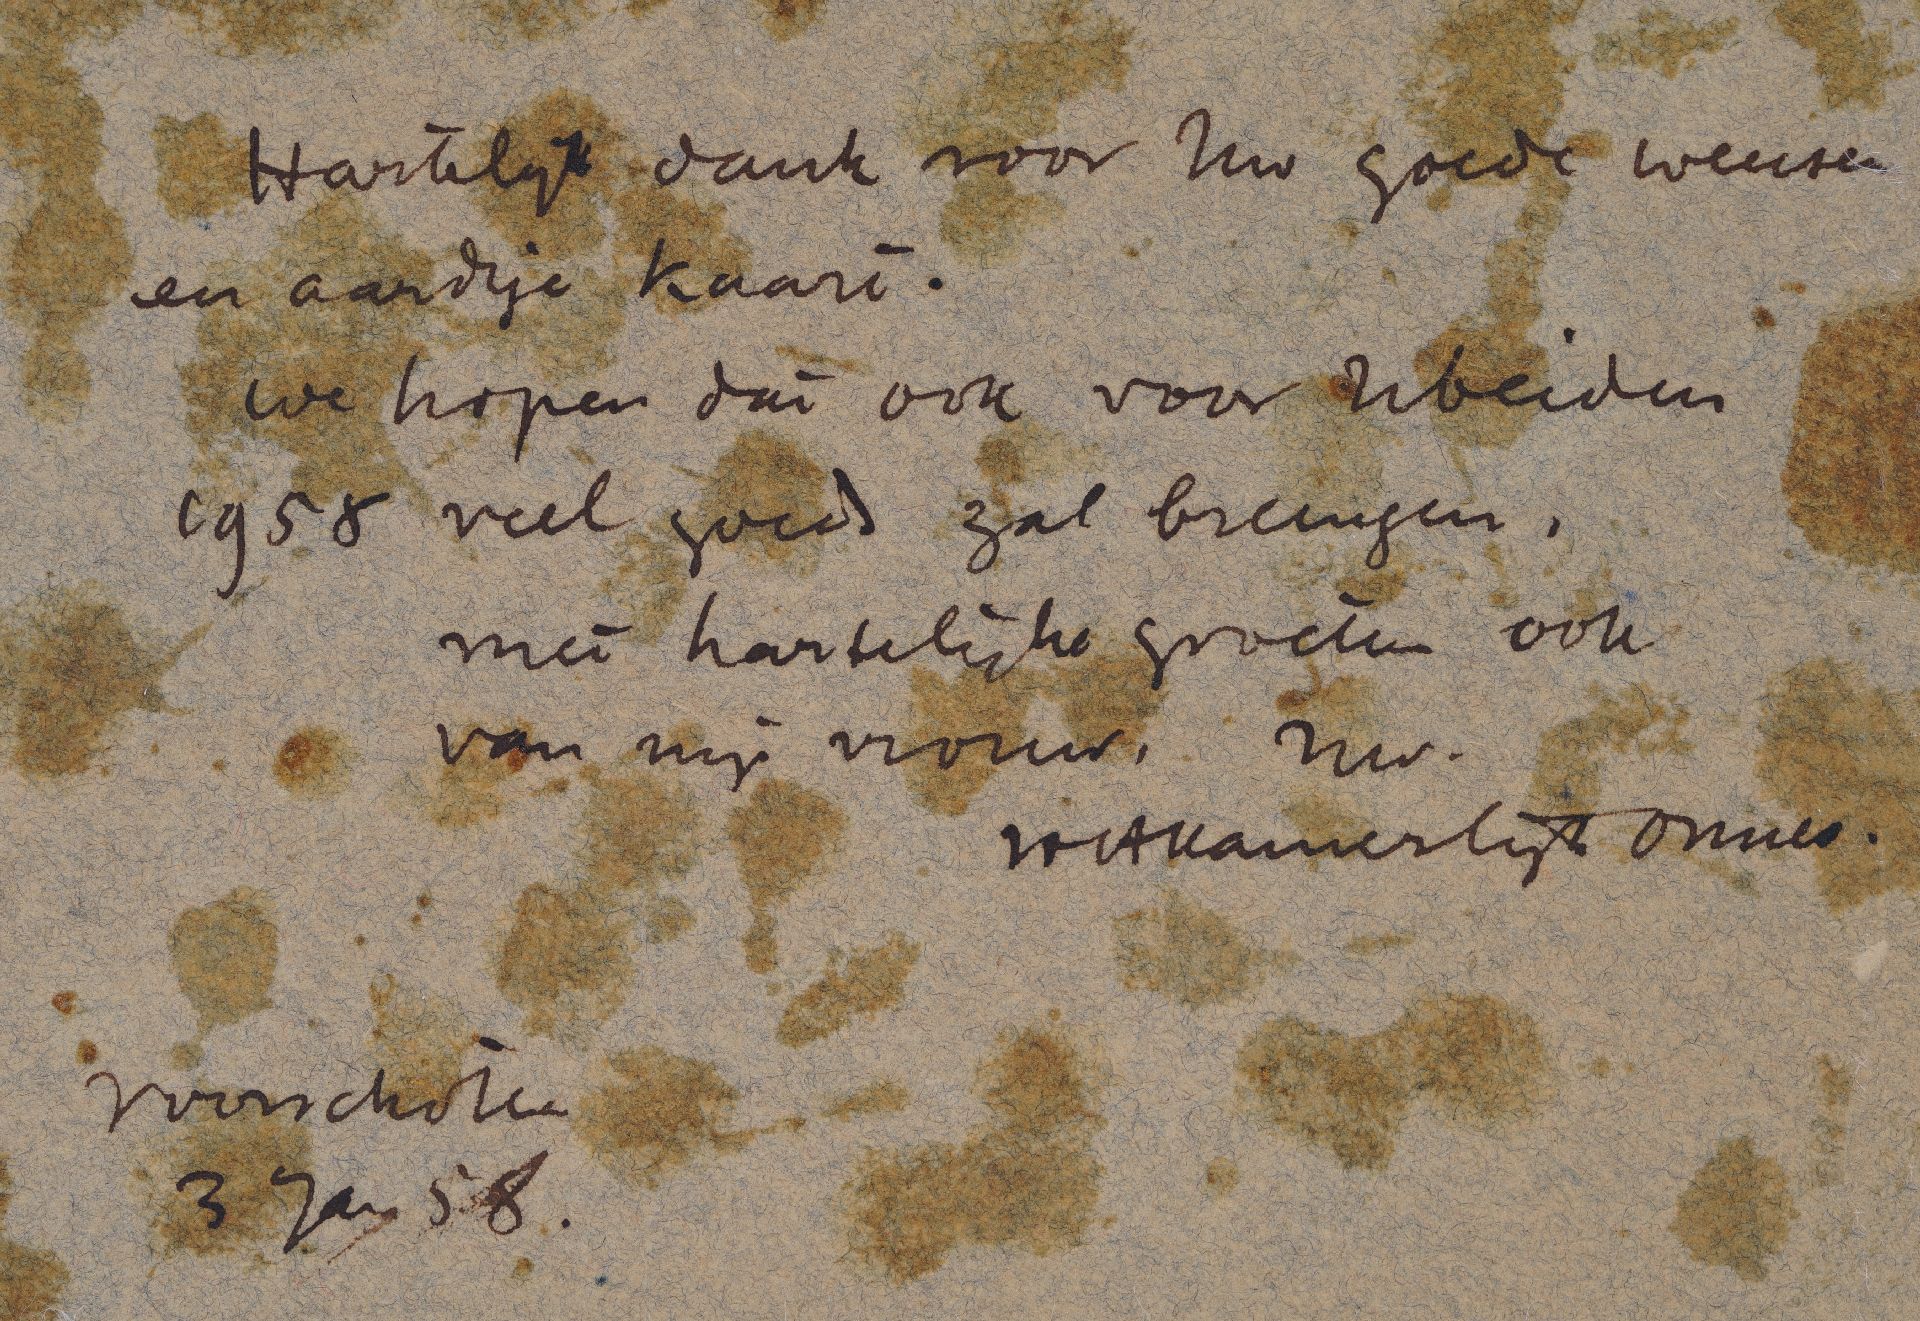 Hartelijk dank voor Uw goede wensen
en aardige kaart.
we hopen dat ook voor U beiden
1958 veel goeds zal brengen.
met hartelijke groeten ook
van mijn vrouw. Uw.
HH Kamerlingh Onnes.
Voorschoten
3 Jan 58.